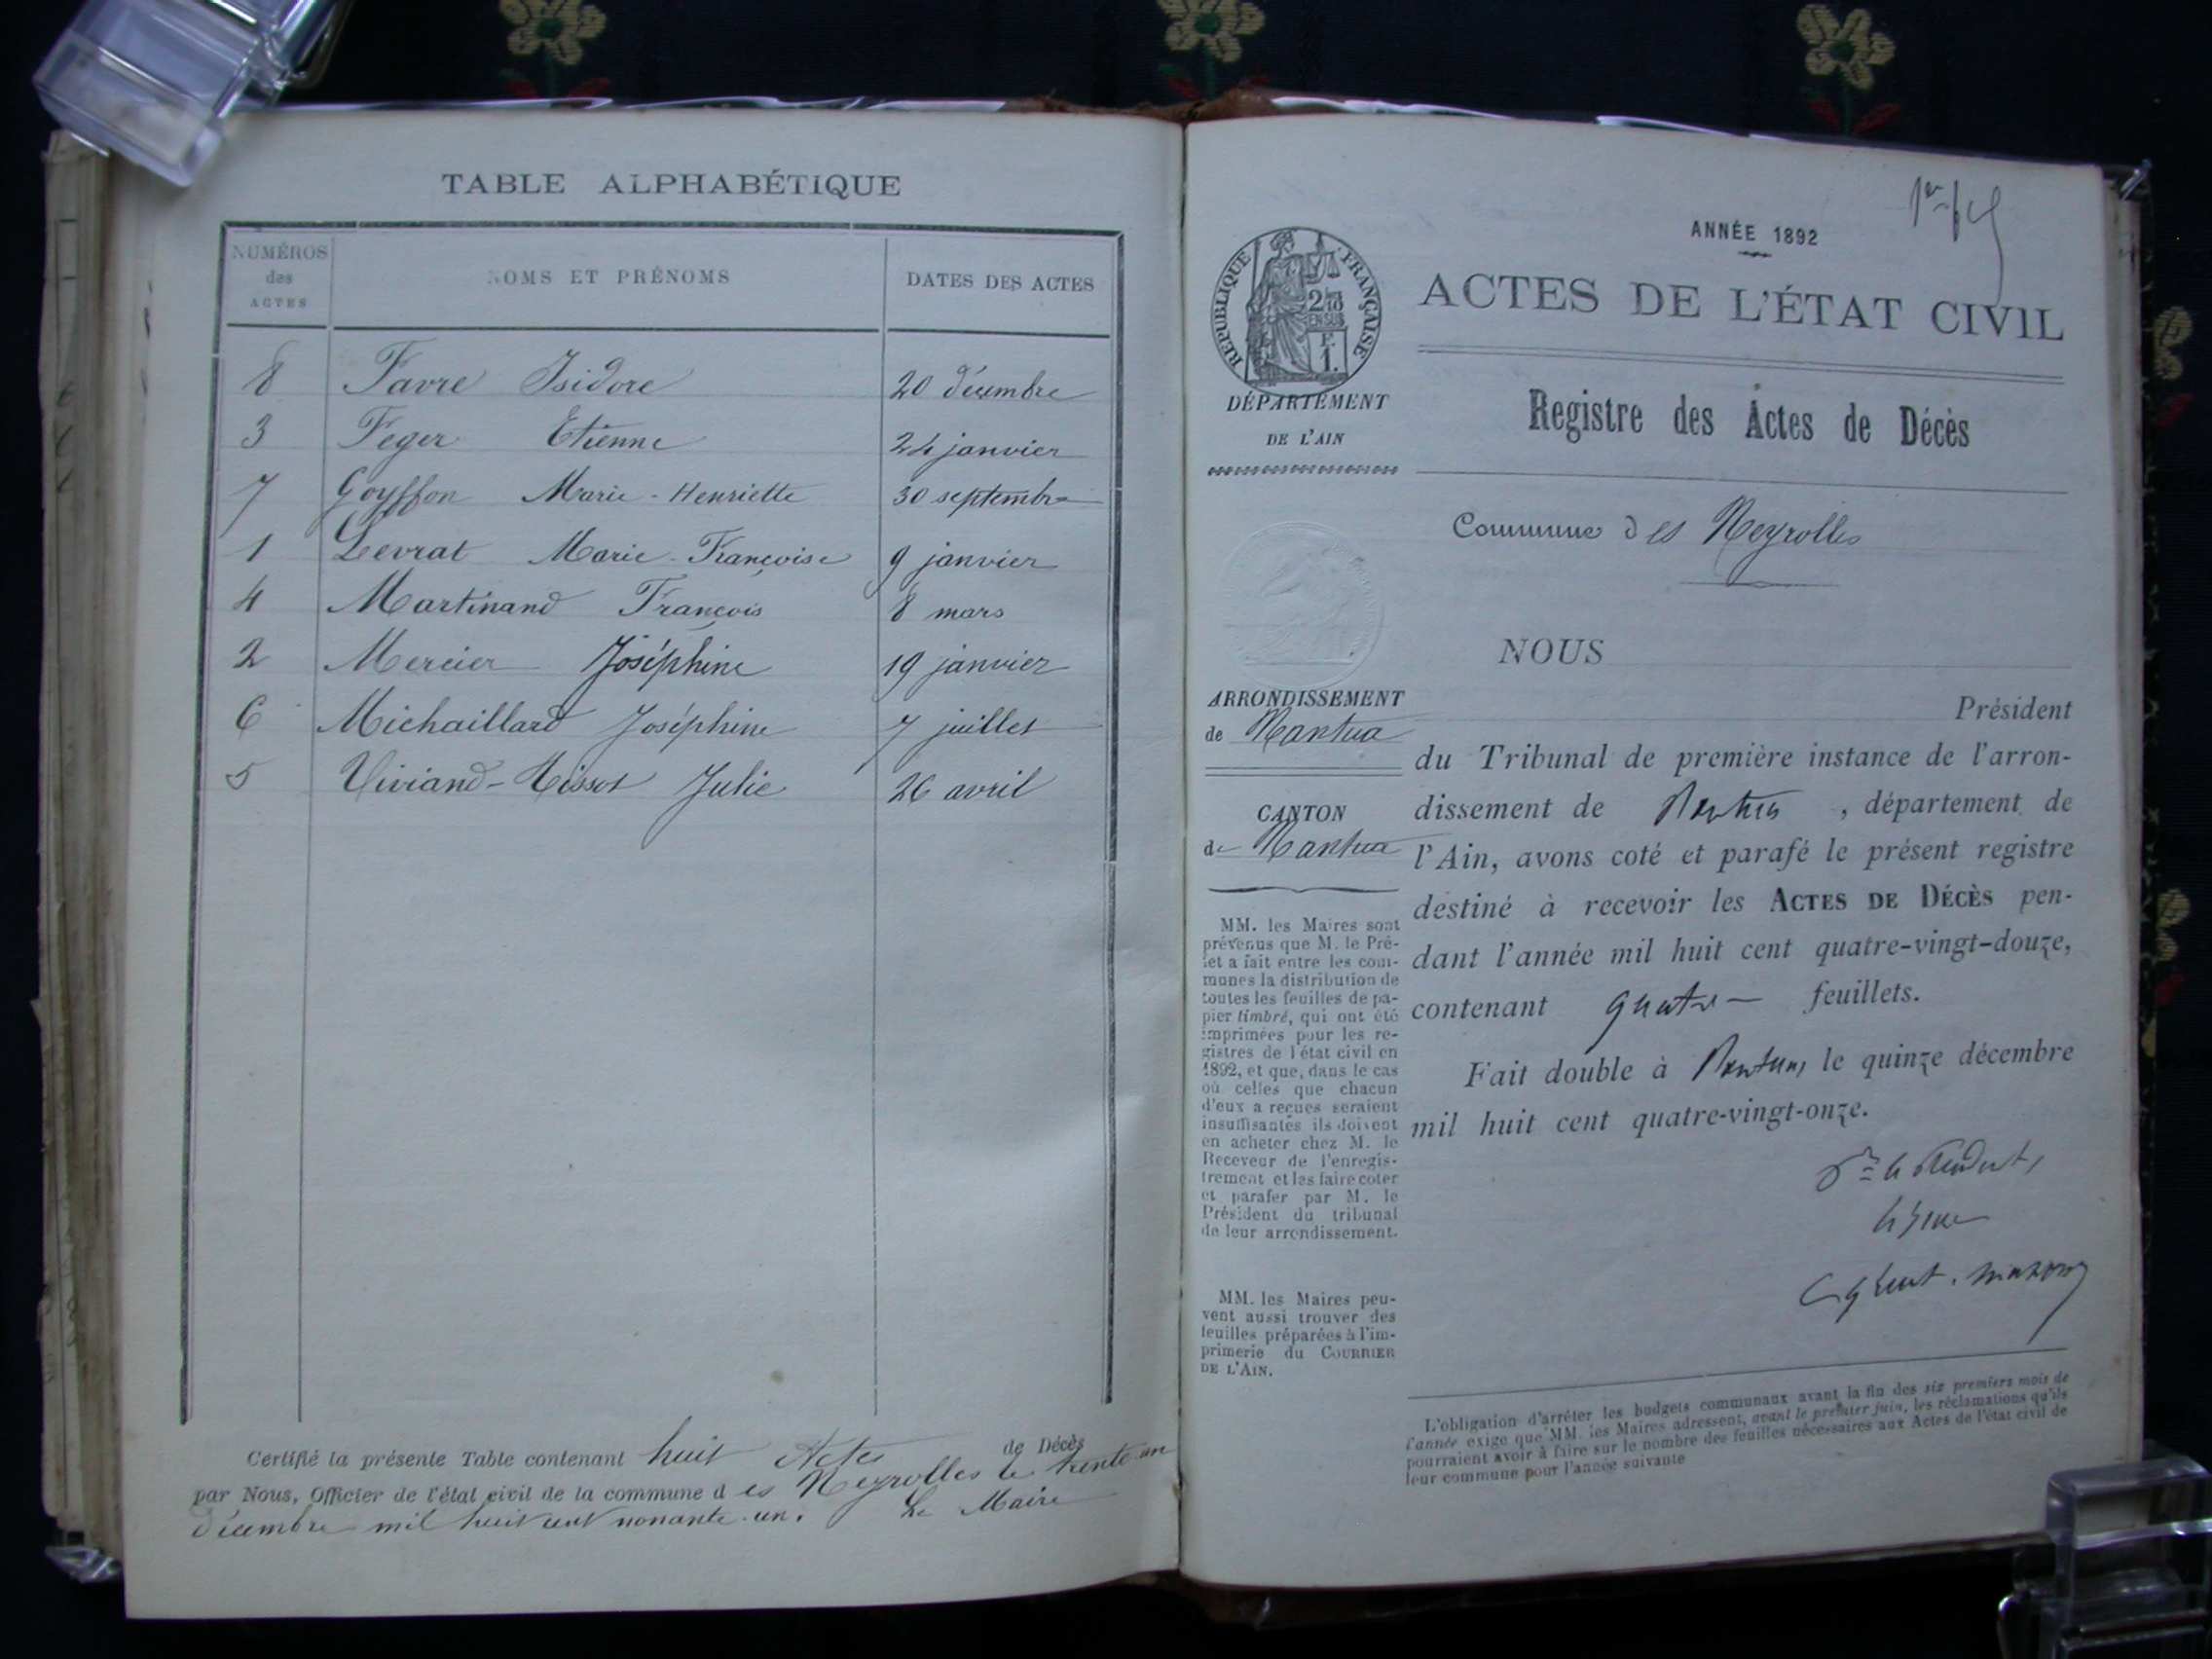 TABLE ALPHABÉTIQUE
NUMÉROS des ACTES NOMS ET PRÉNOMS DATES DES ACTES
8 Favre Isidore 20 décembre
3 Feger Etienne 24 janvier
7 Goyffon Marie-Henriette 30 septembre
1 Levrat Marie-Françoise 9 janvier
4 Martinand François 8 mars
2 Mercier Joséphine 19 janvier
6 Michaillard Joséphine 7 juillet
5 Viviand-Tissot Julie 26 avril
Certifié la présente Table contenant huit Actes de Décès
par Nous, Officier de l'état civil de la commune des Neyrolles le trente-un
décembre mil huit cent nonante-un. Le Maire
ANNÉE 1892
RÉPUBLIQUE FRANÇAISE
ACTES DE L'ÉTAT CIVIL
DÉPARTEMENT
DE L'AIN
Registre des Actes de Décès
Commune des Neyrolles
NOUS
ARRONDISSEMENT
de Nantua
CANTON
de Nantua
MM. les Maires sont
prévenus que M. le Pré-
fet a fait entre les com-
munes la distribution de
toutes les feuilles de pa-
pier timbré, qui ont été
imprimées pour les re-
gistres de l'état civil en
1892, et que, dans le cas
où celles que chacun
d'eux a reçues seraient
insuffisantes ils doivent
en acheter chez M. le
Receveur de l'enregis-
trement et les faire coter
et parafer par M. le
Président du tribunal
de leur arrondissement.
MM. les Maires peu-
vent aussi trouver des
feuilles préparées à l'im-
primerie du COURRIER
DE L'AIN.
Président
du Tribunal de première instance de l'arron-
dissement de Nantua, département de
l'Ain, avons coté et parafé le présent registre
destiné à recevoir les ACTES DE DÉCÈS pen-
dant l'année mil huit cent quatre-vingt-douze,
contenant quatre feuillets.
Fait double à Nantua, le quinze décembre
mil huit cent quatre-vingt-onze.
L'obligation d'arrêter les budgets communaux avant la fin des six premiers mois de
l'année exige que MM. les Maires adressent, avant le premier juin, les réclamations qu'ils
pourraient avoir à faire sur le nombre des feuilles nécessaires aux Actes de l'état civil de
leur commune pour l'année suivante